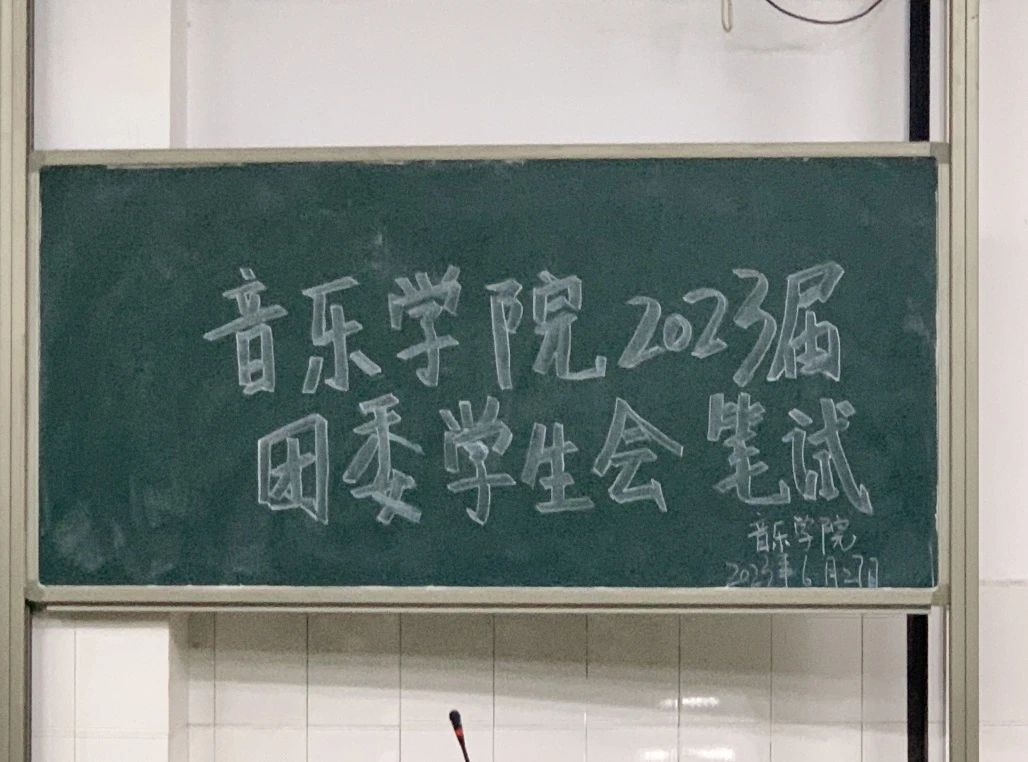 音乐学院2023届
团委学生会笔试
音乐学院
2023年6月27日